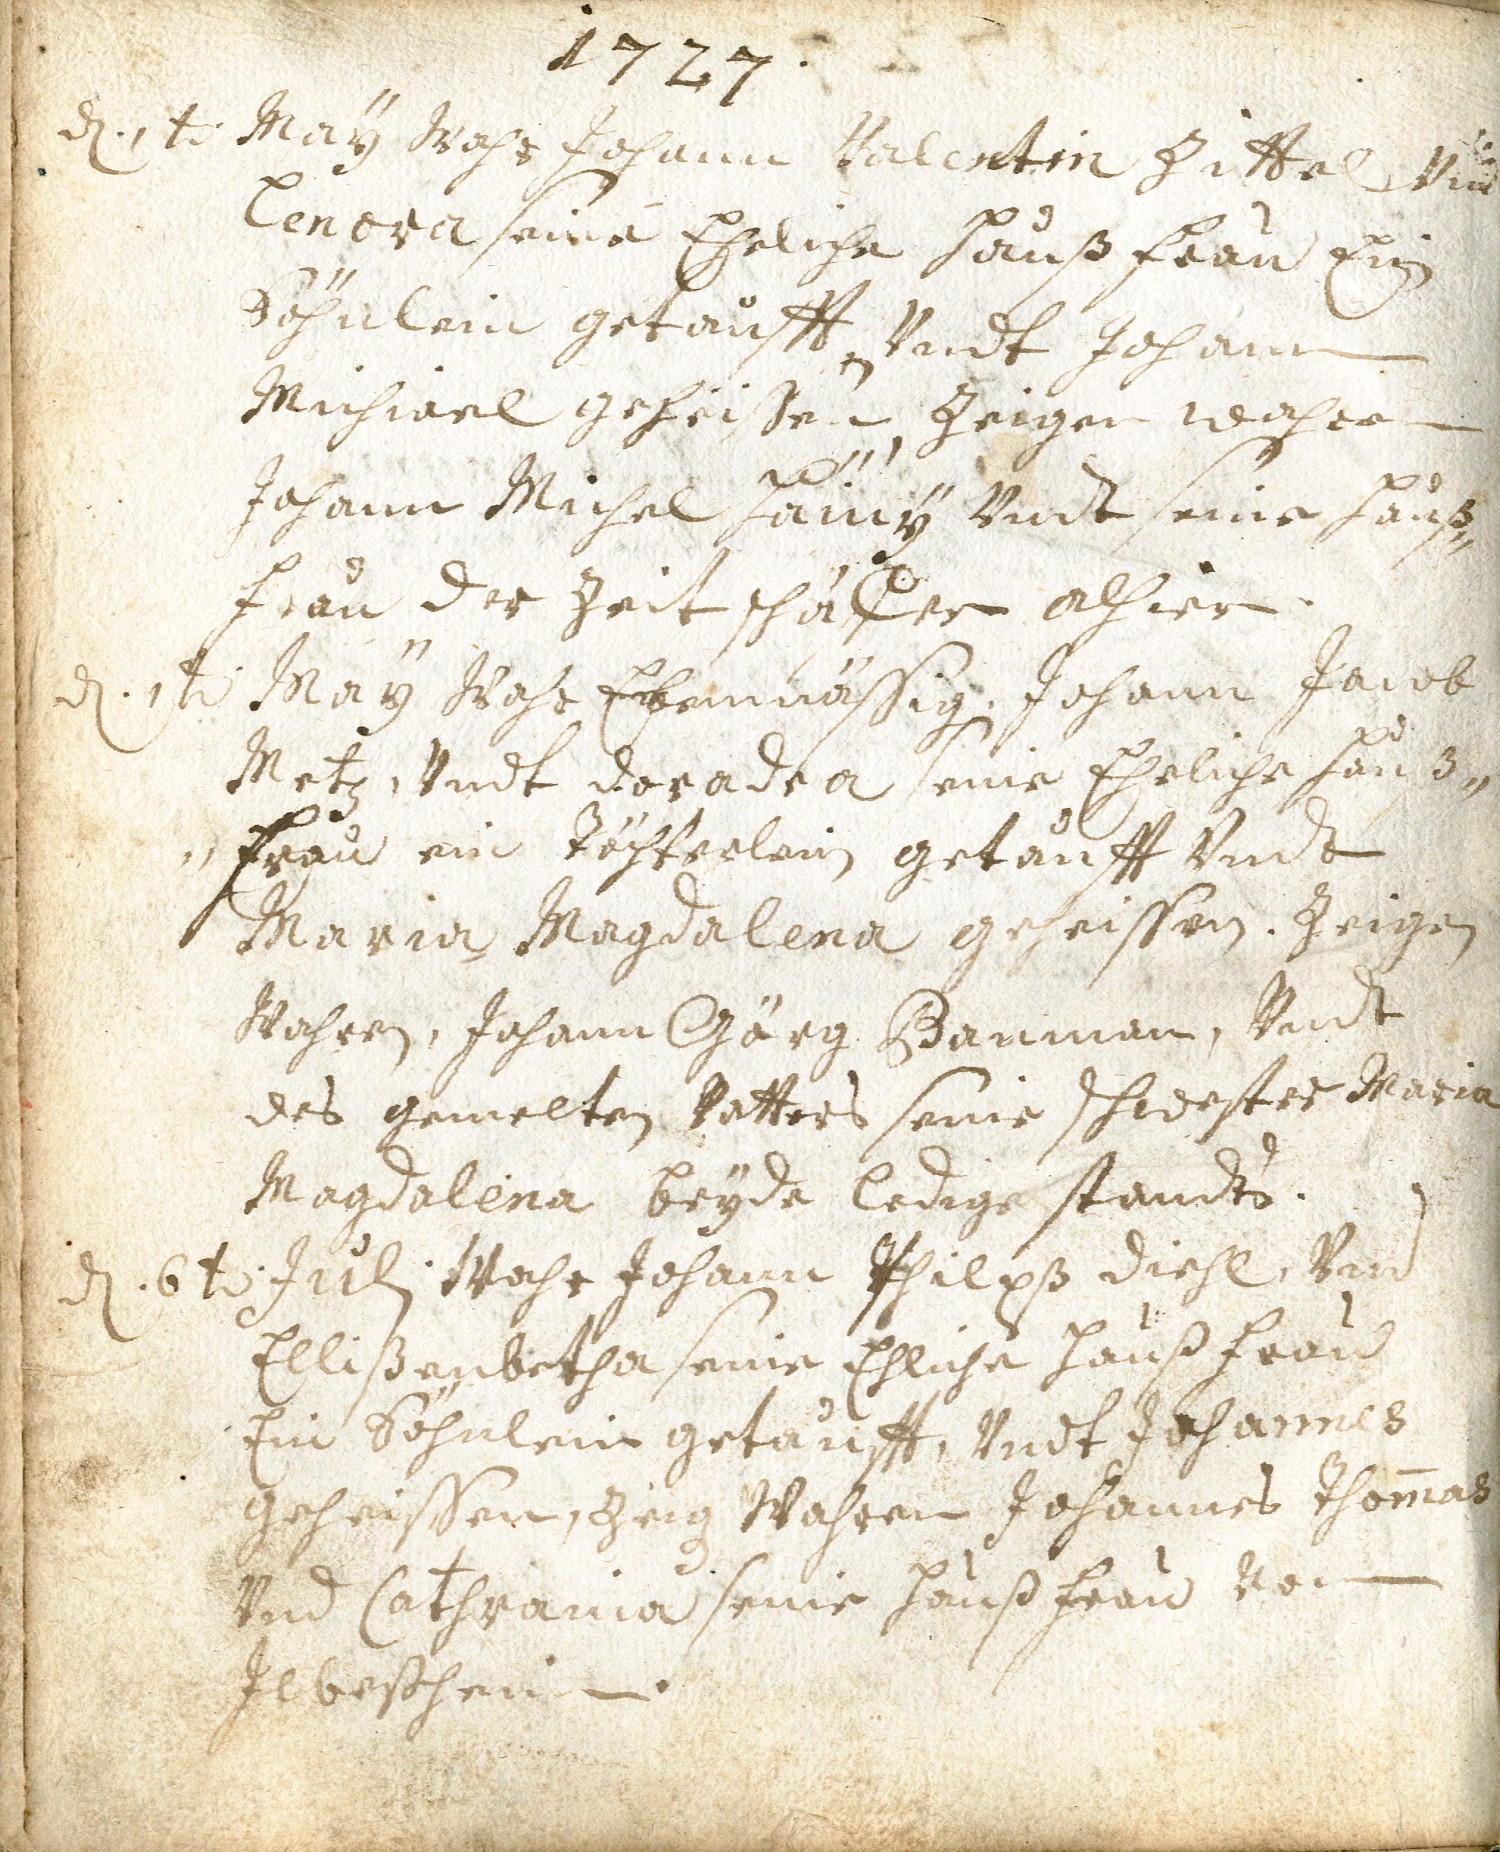 1727.
d. 1t. May Wahr Johann Valentin Zittel Vnd
Lenora seine Eheliche Hauß frau Ein
Söhnlein getaufft, Vndt Johann
Michael geheissen, Zeigen wahren
Johann Michel Vndt seine Hauß„
frau der Zeit schäffer alhier.
d. 1t. May Wahr Ebenmässig. Johann Jacob
Metz, Vndt doradea seine Eheliche Hauß„
„frau ein Töchterlein getaufft Vndt
Maria Magdalena geheissen. Zeigen
Wahren, Johann Görg Bauman, Vndt
des gemelten Vatters seine schwester Maria
Magdalena beyde ledige standts.
d. 6t. Julj Wahr Johann Philpß diehl, Vnd
Ellißenbetha seine Ehliche Hauß frau
Ein Söhnlein getaufft, Vndt Johannes
geheissen, Zeig Wahren Johannes Thom̄as
Vnd Cathraina seine Hauß frau Von
Ilbeßheim.